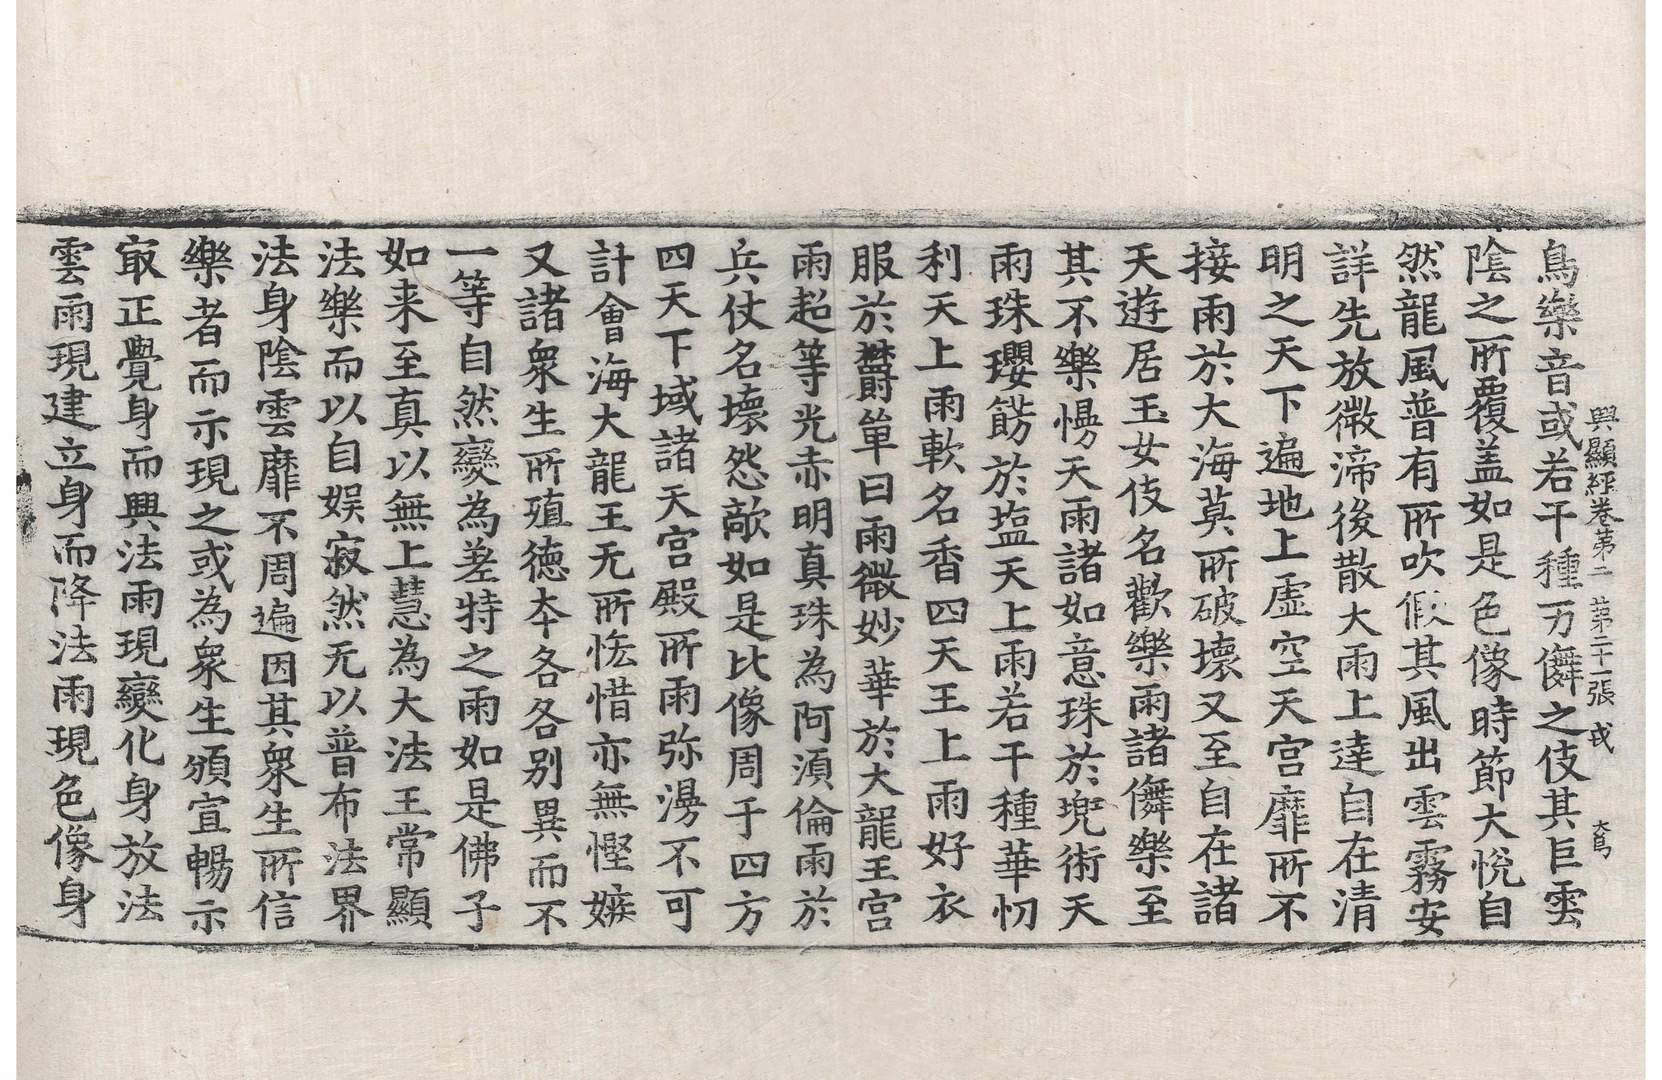 興顯經卷第二 第二十一張 戎 大鳥
鳥樂音或若干種万儛之伎其巨雲
陰之所覆盖如是色像時節大悅自
然龍風普有所吹假其風出雲霧安
詳先放微渧後散大雨上達自在清
明之天下遍地上虛空天宮靡所不
接雨於大海莫所破壞又至自在諸
天遊居玉女伎名歡樂雨諸儛樂至
其不樂慢天雨諸如意珠於兠術天
雨珠瓔飾於塩天上雨若干種華忉
利天上雨軟名香四天王上雨好衣
服於欝單曰雨微妙華於大龍王宮
雨超等光赤明真珠為阿湏倫雨於
兵仗名壞怨敵如是比像周于四方
四天下域諸天宮殿所雨弥漫不可
計會海大龍王无所悋惜亦無慳嫉
又諸衆生所殖德夲各各別異而不
一等自然變為差特之雨如是佛子
如来至真以無上慧為大法王常顯
法樂而以自娛寂然无以普布法界
法身陰雲靡不周遍因其衆生所信
樂者而示現之或為衆生頒宣暢示
㝡正覺身而興法雨現變化身放法
雲雨現建立身而降法雨現色像身